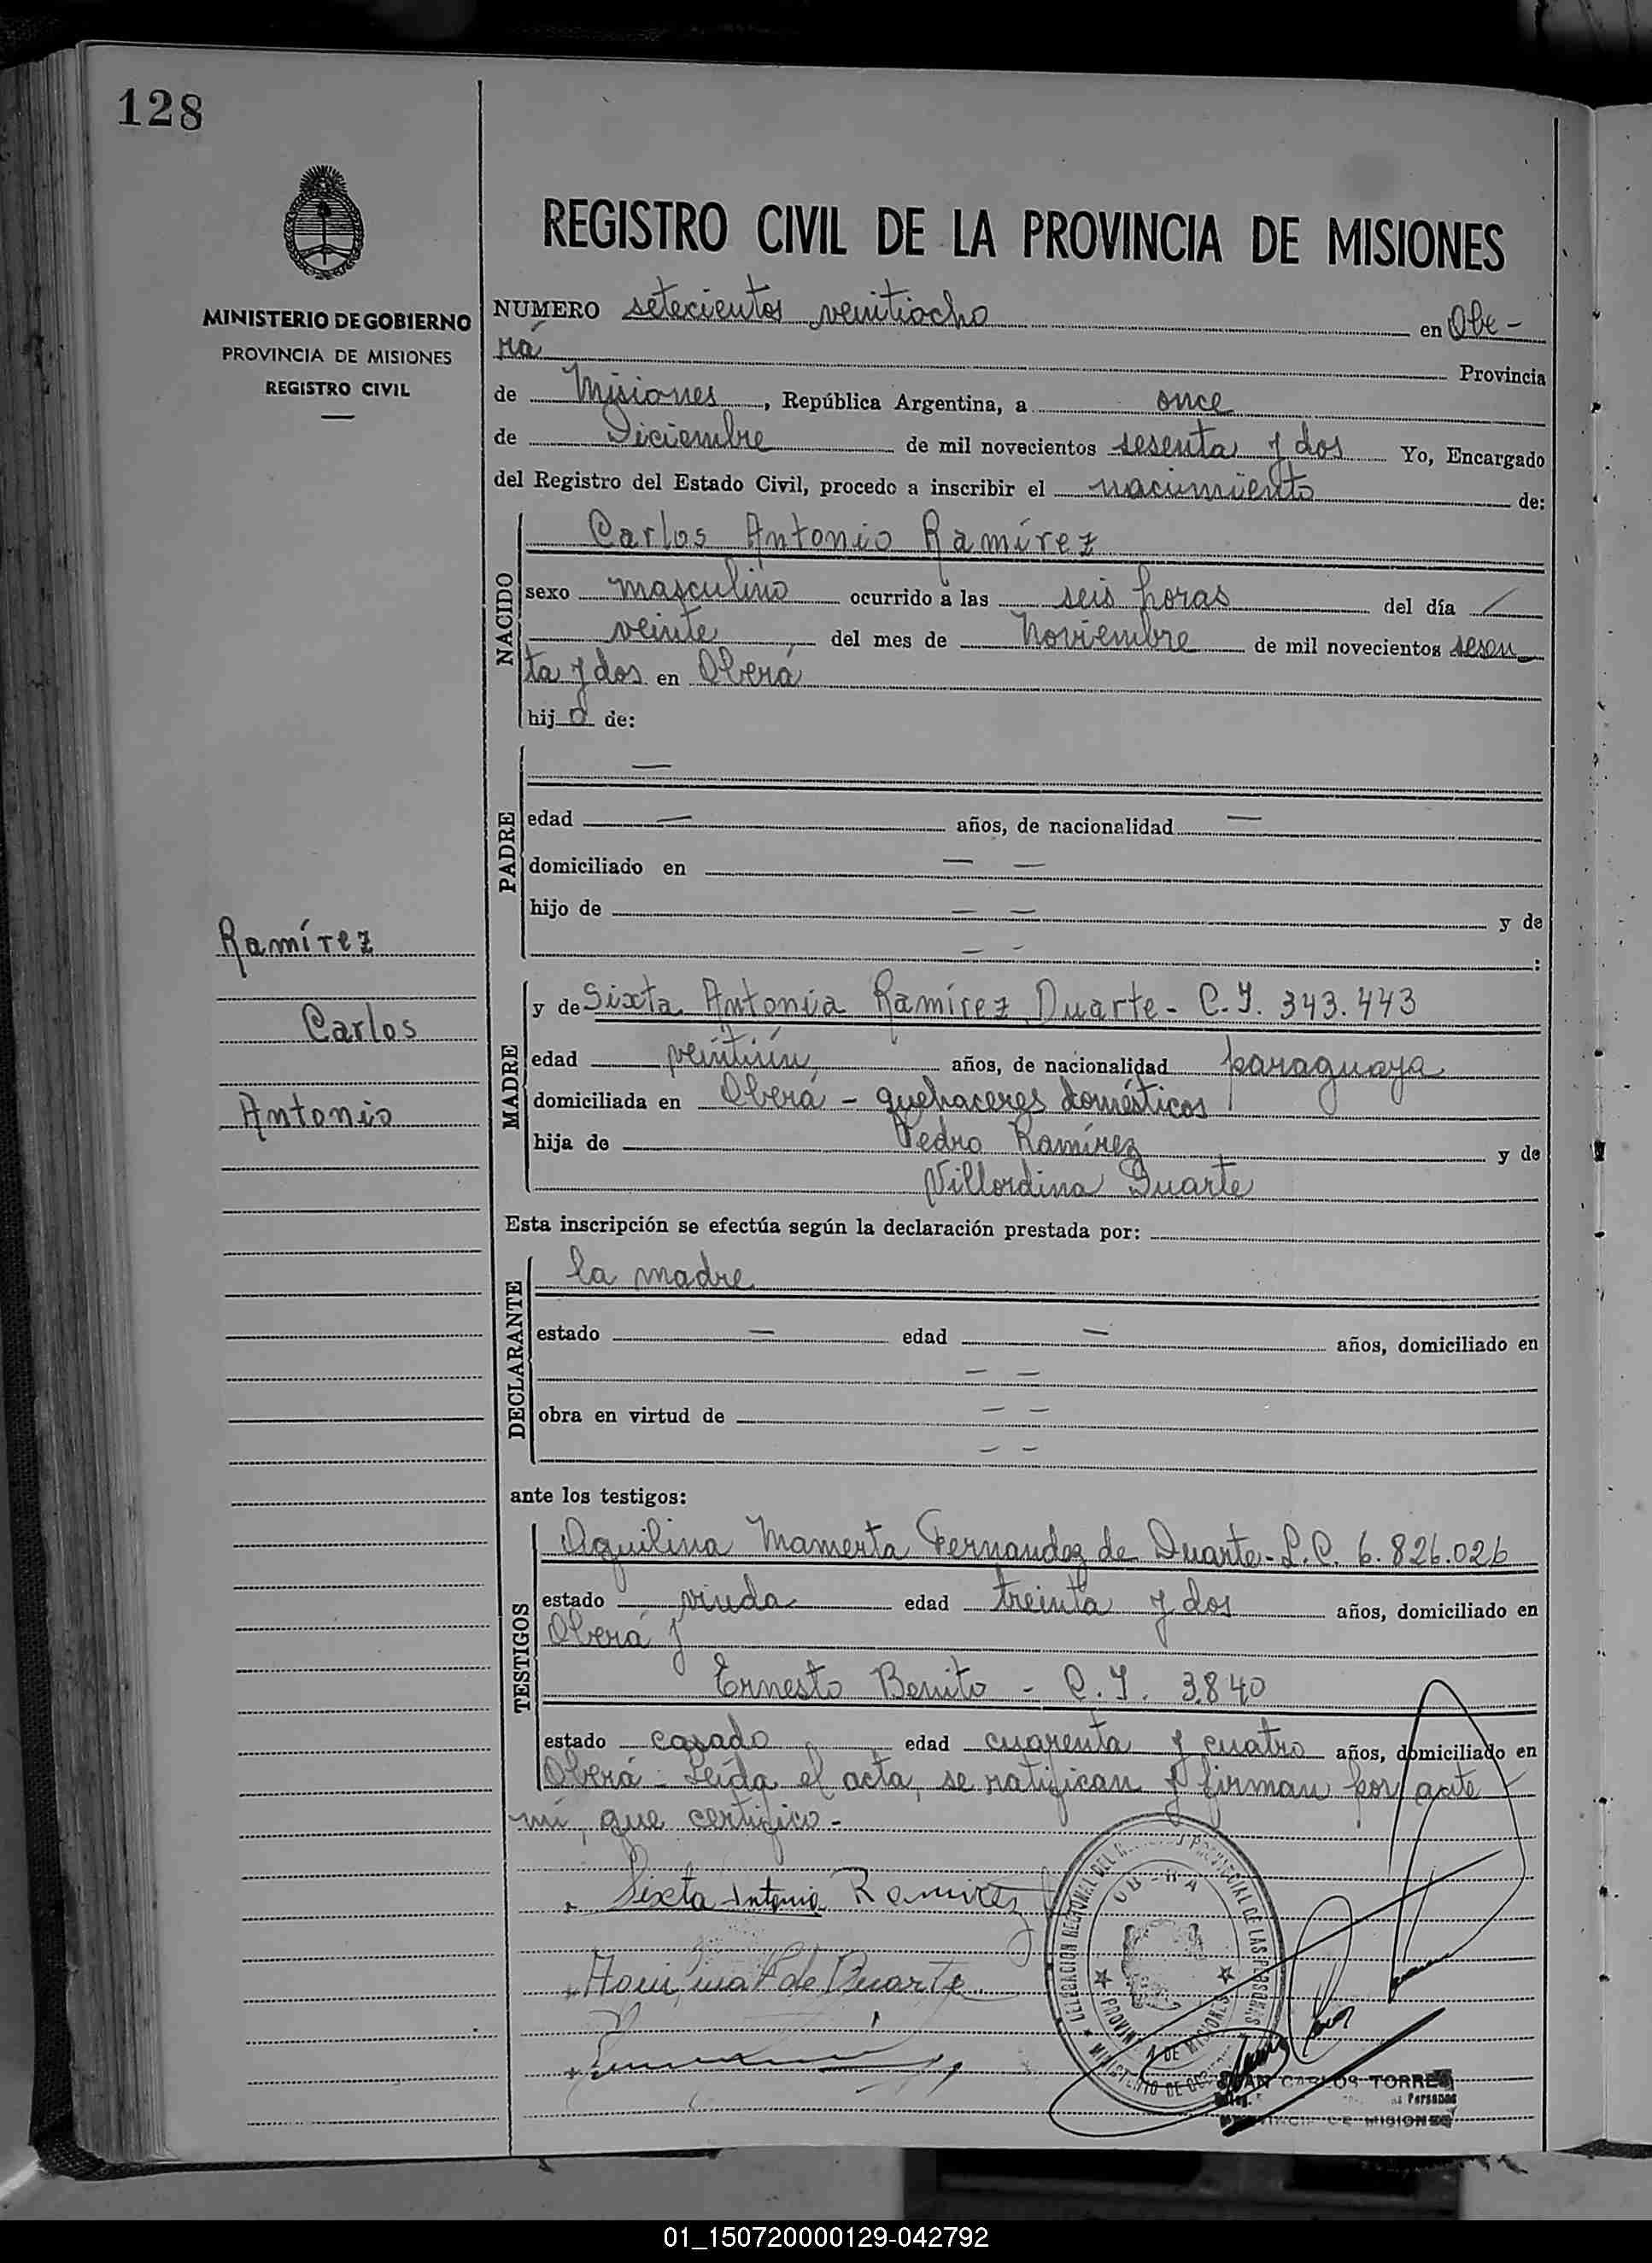 128
MINISTERIO DE GOBIERNO
PROVINCIA DE MISIONES
REGISTRO CIVIL
Ramírez
Carlos
Antonio
REGISTRO CIVIL DE LA PROVINCIA DE MISIONES
NUMERO setecientos veintiocho en Obe-
rá Provincia
de Misiones, República Argentina, a once
de Diciembre de mil novecientos sesenta y dos Yo, Encargado
del Registro del Estado Civil, procedo a inscribir el nacimiento de:
NACIDO
Carlos Antonio Ramírez
sexo masculino ocurrido a las seis horas del día /
veinte del mes de Noviembre de mil novecientos sesen
ta y dos en Oberá
hijo de:
PADRE
—
edad — años, de nacionalidad —
domiciliado en — —
hijo de — — y de
— - :
MADRE
y de Sixta Antonia Ramírez Duarte - C.I. 343.443
edad veintiún años, de nacionalidad paraguaya
domiciliada en Oberá - quehaceres domésticos
hija de Pedro Ramírez y de
Villordina Duarte
Esta inscripción se efectúa según la declaración prestada por:
DECLARANTE
la madre
estado — edad — años, domiciliado en
— —
obra en virtud de — —
— —
ante los testigos:
TESTIGOS
Aquilina Mamerta Fernandez de Duarte - L.C. 6.826.026
estado viuda edad treinta y dos años, domiciliado en
Oberá y
Ernesto Benito - C.I. 3840
estado casado edad cuarenta y cuatro años, domiciliado en
Oberá - Leída el acta, se ratifican y firman por ante
mí, que certifico -
Sixta Antonia Ramirez
de Duarte
DELEGACION REGIONAL DEL PROVINCIAL DE LAS PERSONAS
MINISTERIO DE
PROVINCIA DE MISIONES
JUAN CARLOS TORRES
Personas
DE MISIONES
01_150720000129-042792